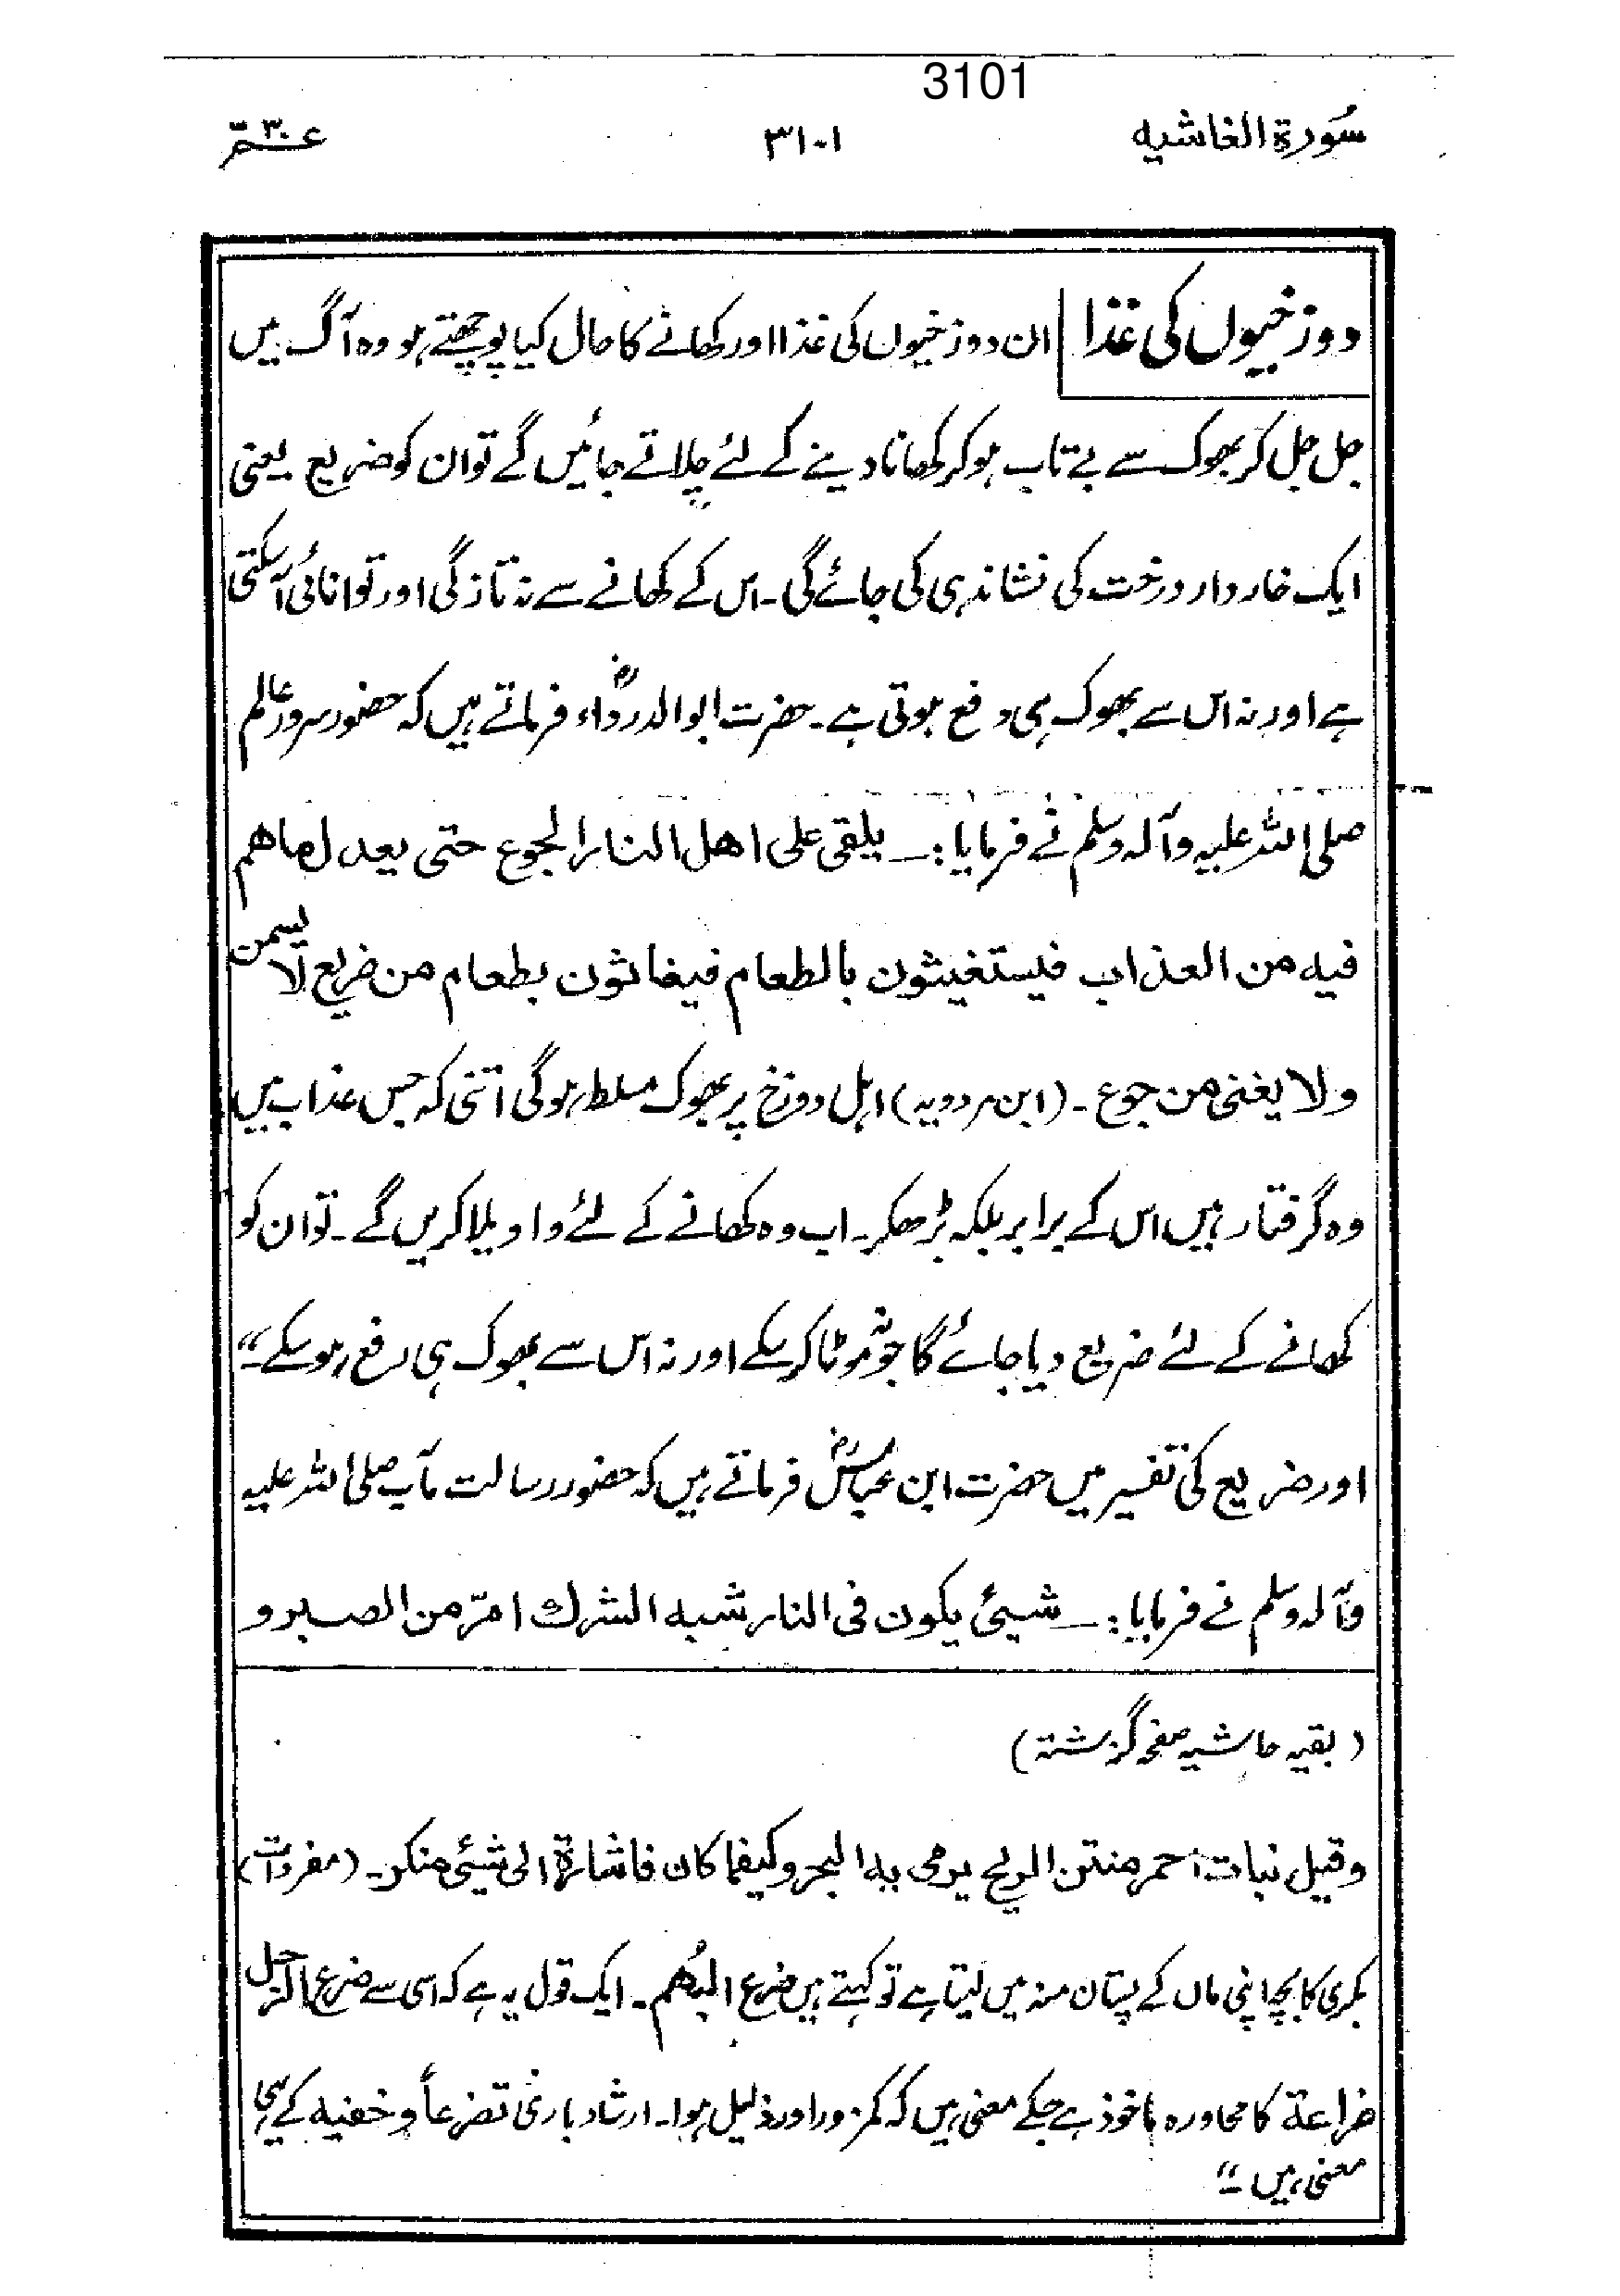 3101
سُورۃ الغاشیه ۳۱۰۱ عـمّ ۳۰
دوزخیوں کی غذا ان دوزخیوں کی غذا اور کھانے کا حال کیا پوچھتے ہو وہ آگ میں
جل جل کر بھوک سے بے تاب ہو کر کھانا دینے کے لئے چلاتے جائیں گے تو ان کو ضریع یعنی
ایک خاردار درخت کی نشاندہی کی جائے گی۔ اس کے کھانے سے نہ تازگی اور توانائی آسکتی
ہے اور نہ اس سے بھوک ہی دفع ہوتی ہے۔ حضرت ابوالدرداءؓ فرماتے ہیں کہ حضور سرور عالم
صلی اللہ علیہ وآلہ وسلم نے فرمایا:۔ یلقی علی اھل النار الجوع حتی یعدل ماھم
فیہ من العذاب فیستغیثون بالطعام فیغاثون بطعام من ضریع لا یسمن
ولا یغنی من جوع۔ (ابن مردویہ) اہل دوزخ پر بھوک مسلط ہوگی اتنی کہ جس عذاب میں
وہ گرفتار ہیں اس کے برابر بلکہ بڑھکر۔ اب وہ کھانے کے لئے واویلا کریں گے۔ تو ان کو
کھانے کے لئے ضریع دیا جائے گا جو نہ موٹا کر سکے اور نہ اس سے بھوک ہی رفع ہوسکے۔"
اور ضریع کی تفسیر میں حضرت ابن عباسؓ فرماتے ہیں کہ حضور رسالت مآب صلی اللہ علیہ
وآلہ وسلم نے فرمایا:۔ شیئ یکون فی النار شبہ الشرك امرّ من الصبر و
(بقیہ حاشیہ صفحہ گزشتہ)
وقیل نبات احمر منتن الریح یرمی بہ البحر وکیفما کان فاشارۃ الی شیئ منکر۔ (مفردات)
بکری کا بچہ اپنی ماں کے پستان منہ میں لیتا ہے تو کہتے ہیں ضرع البُھم۔ ایک قول یہ ہے کہ اسی سے ضرع الرجل
ضراعۃ کا محاورہ ماخوذ ہے جسکے معنی ہیں کہ کمزور اور ذلیل ہوا۔ ارشاد باری تضرعاً و خفیہ کے یہی
معنی ہیں۔"